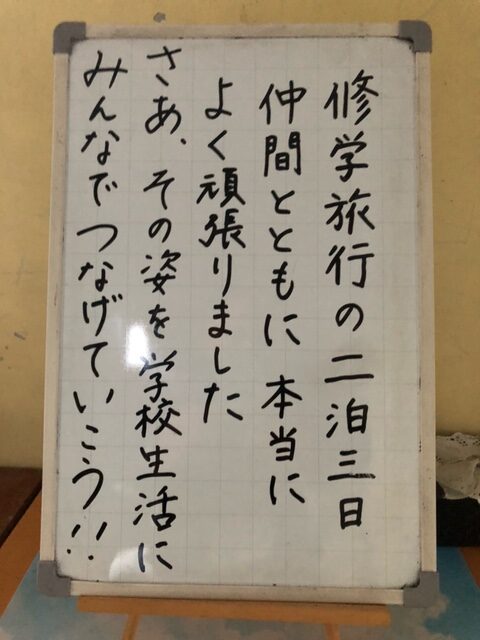 修学旅行の二泊三日
仲間とともに 本当に
よく頑張りました
さあ、その姿を学校生活に
みんなでつなげていこう!!